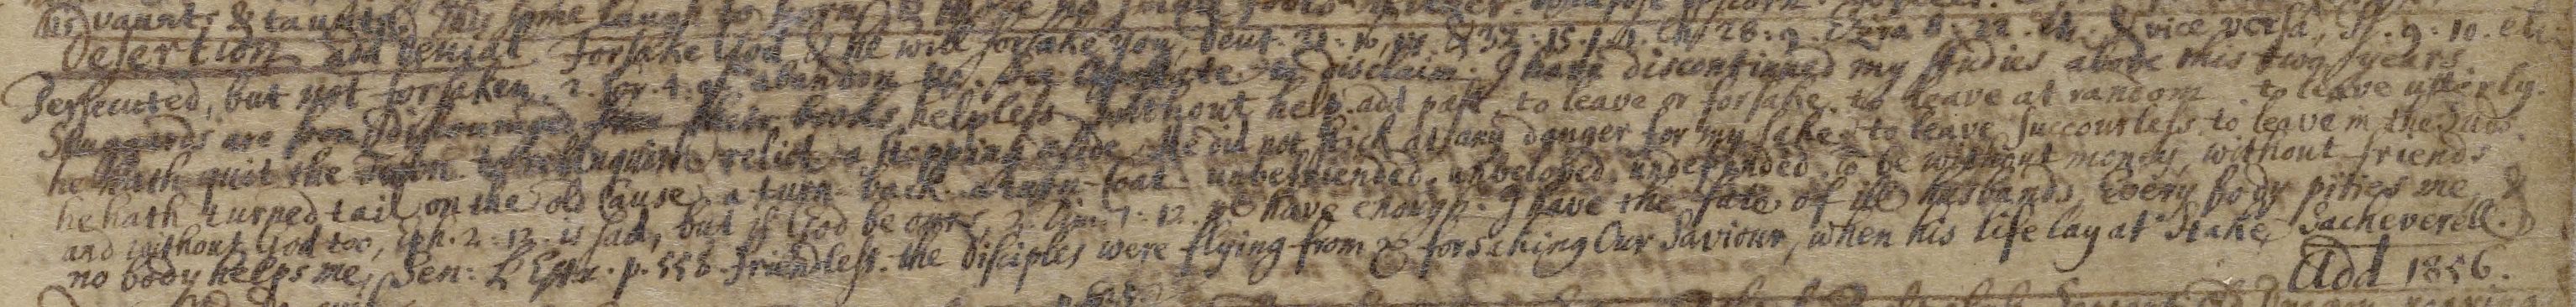 his vaunts & taunts. This some laugh to scorn
Desertion and denial Forsake God & he will forsake you, Deut. 31:16,17. & 32:15. 1. Ch. 28:9. Ezra 8:22. & vice versa, Ps. 9:10. etc.
Persecuted, but not forsaken. 2. Cor. 4:9. abandon to disclaim. I have discontinued my studies above this two years.
Sluggards are from their books, helpless without help. add past. to leave or forsake. to leave at random. to leave utterly.
he hath quit the Town. to relinquish relict a stepping aside. He did not stick at any danger for my sake. to leave succourless. to leave in the Suds.
he hath turned tail on the old Cause, a turn-back. a turn-coat. unbefriended. unbeloved. undefended. To be without money, without friends
and without God too, Eph. 2:12. is sad, but if God be ours, 2. Tim. 1:12. we have enough. I have the fate of ill husbands, every body pities me, &
no body helps me, Sen: L'Estr. p. 558. Friendless. the Disciples were flying from & forsaking Our Saviour, when his life lay at Stake, Sacheverell.
Add 1856.